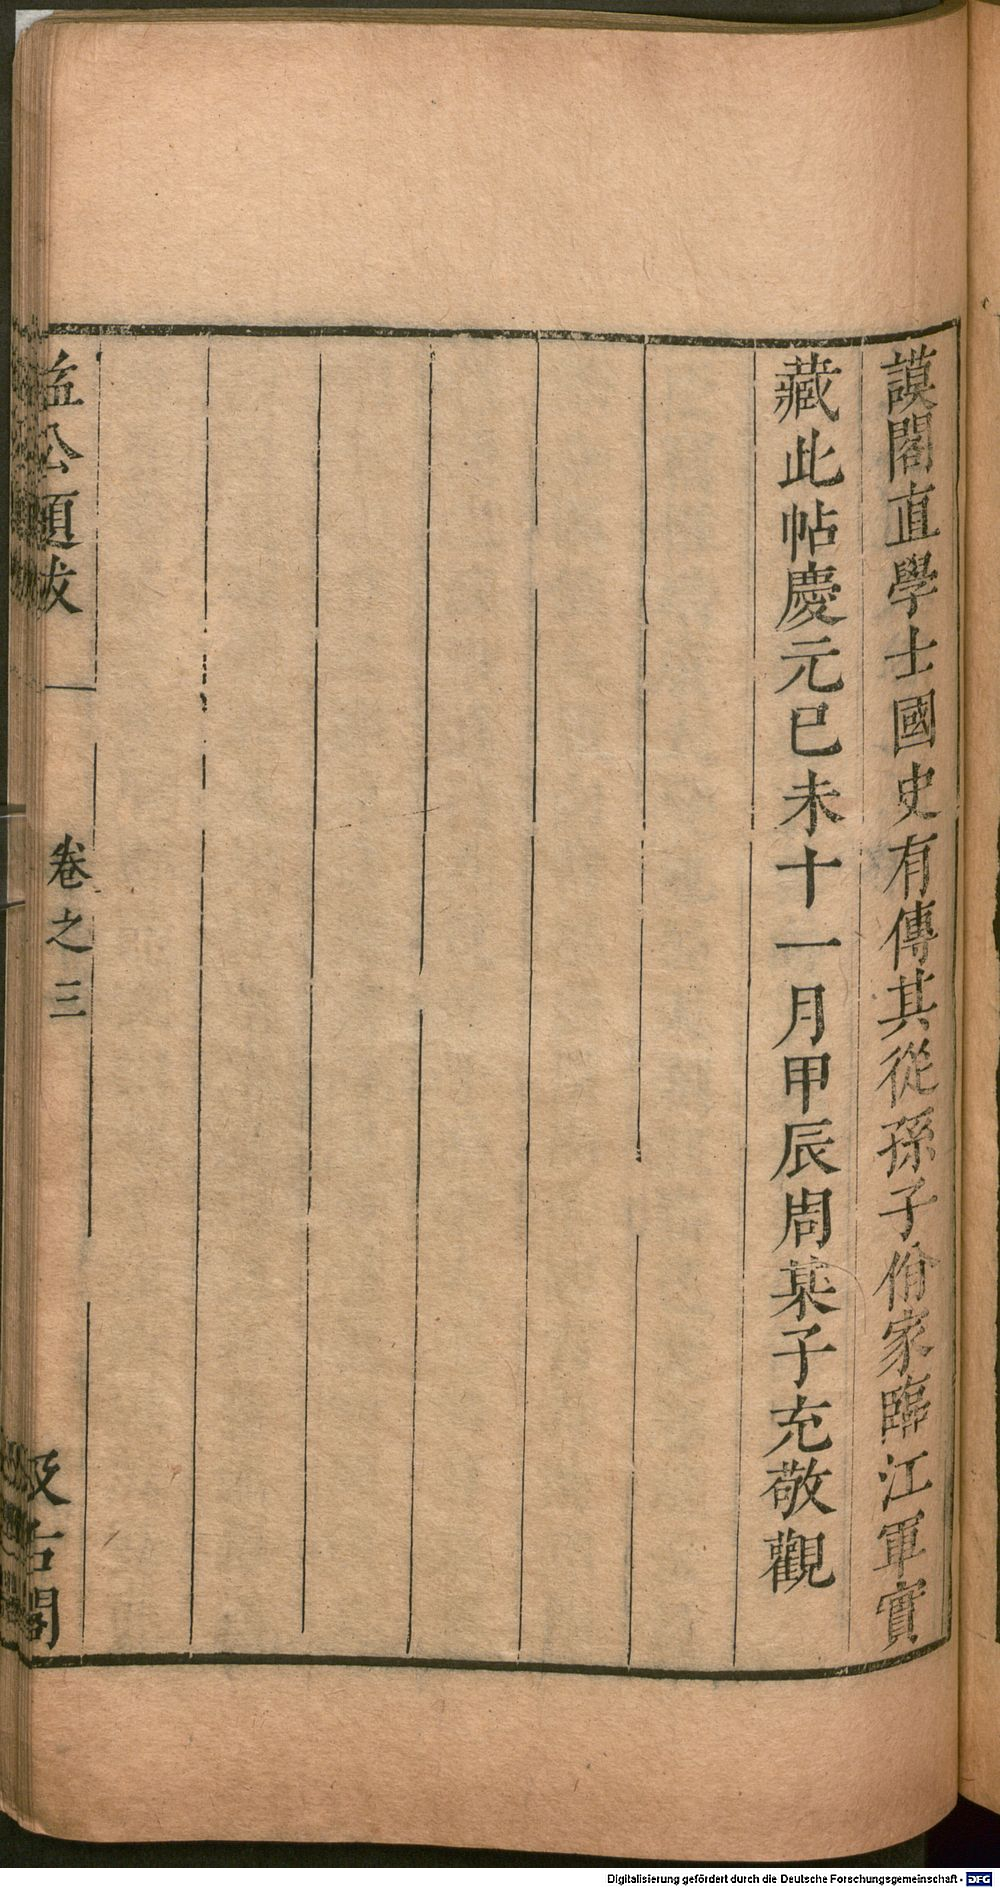 謨閣直學士國史有傳其從孫子偹家臨江軍實
藏此帖慶元巳未十一月甲辰周某子充敬觀
益公題跋
卷之三
汲古閣
Digitalisierung gefördert durch die Deutsche Forschungsgemeinschaft - DFG